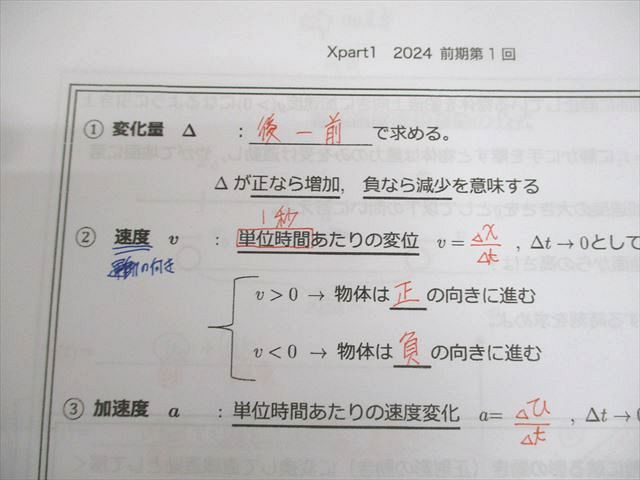 Xpart1 2024 前期第1回
① 変化量 Δ : 後 － 前 で求める。
Δ が正なら増加, 負なら減少を意味する
1秒
② 速度 v : 単位時間あたりの変位 v = Δx/Δt , Δt → 0として
運動の向き
v > 0 → 物体は 正 の向きに進む
v < 0 → 物体は 負 の向きに進む
③ 加速度 a : 単位時間あたりの速度変化 a = Δv/Δt , Δt → 0